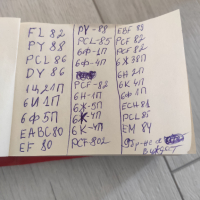 FL 82
PY 88
PCL 86
DY 86
1Ц21П
6И1П
6Ф5П
EABC80
EF 80
PY-88
PCL-85
6Ф-1П
6Ф-4П
PCF-82
6Н-1П
6Ж-5П
6К-4П
6К-4П
PCF-802
EBF 89
PCF 82
PCF 82
6Ж38П
6Н2П
6К4П
6Ф1П
ECH 81
PCL 85
EM 84